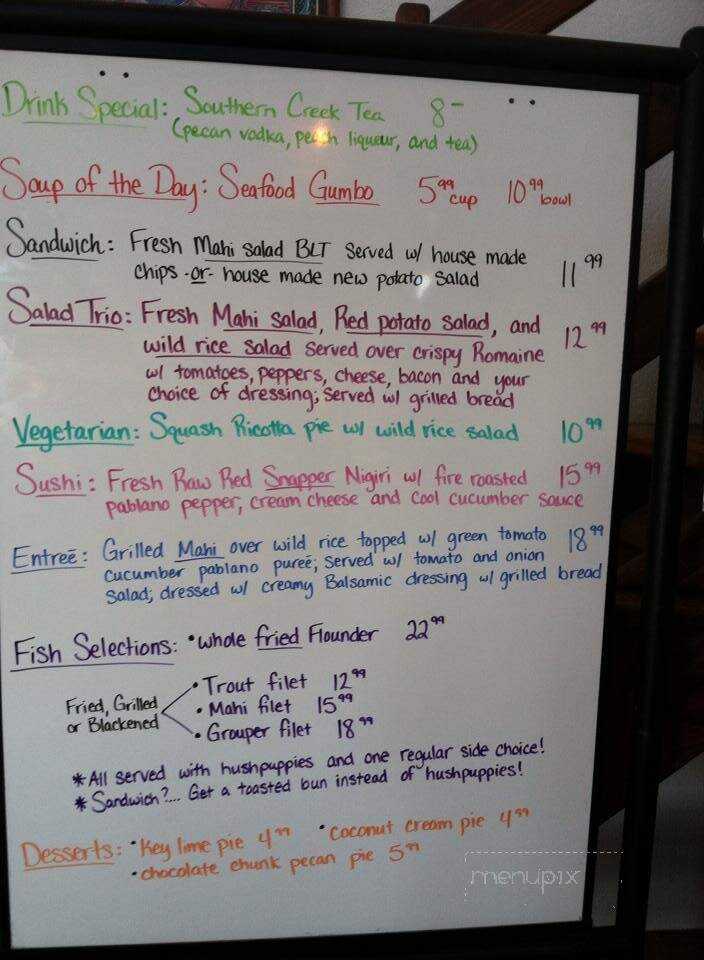 Drink Special: Southern Creek Tea 8-
(pecan vodka, peach liqueur, and tea)
Soup of the Day: Seafood Gumbo 5.99 cup 10.99 bowl
Sandwich: Fresh Mahi salad BLT served w/ house made
chips -or- house made new potato salad 11.99
Salad Trio: Fresh Mahi salad, Red potato salad, and
wild rice salad served over crispy Romaine 12.99
w/ tomatoes, peppers, cheese, bacon and your
choice of dressing; served w/ grilled bread
Vegetarian: Squash Ricotta pie w/ wild rice salad 10.99
Sushi: Fresh Raw Red Snapper Nigiri w/ fire roasted 15.99
pablano pepper, cream cheese and cool cucumber sauce
Entreē: Grilled Mahi over wild rice topped w/ green tomato 18.99
cucumber pablano pureē; served w/ tomato and onion
salad; dressed w/ creamy Balsamic dressing w/ grilled bread
Fish Selections: •whole fried Flounder 22.99
Fried, Grilled
or Blackened
• Trout filet 12.99
• Mahi filet 15.99
• Grouper filet 18.99
*All served with hushpuppies and one regular side choice!
*Sandwich?... Get a toasted bun instead of hushpuppies!
Desserts: •Key lime pie 4.99 •coconut cream pie 4.99
•chocolate chunk pecan pie 5.99
menupix